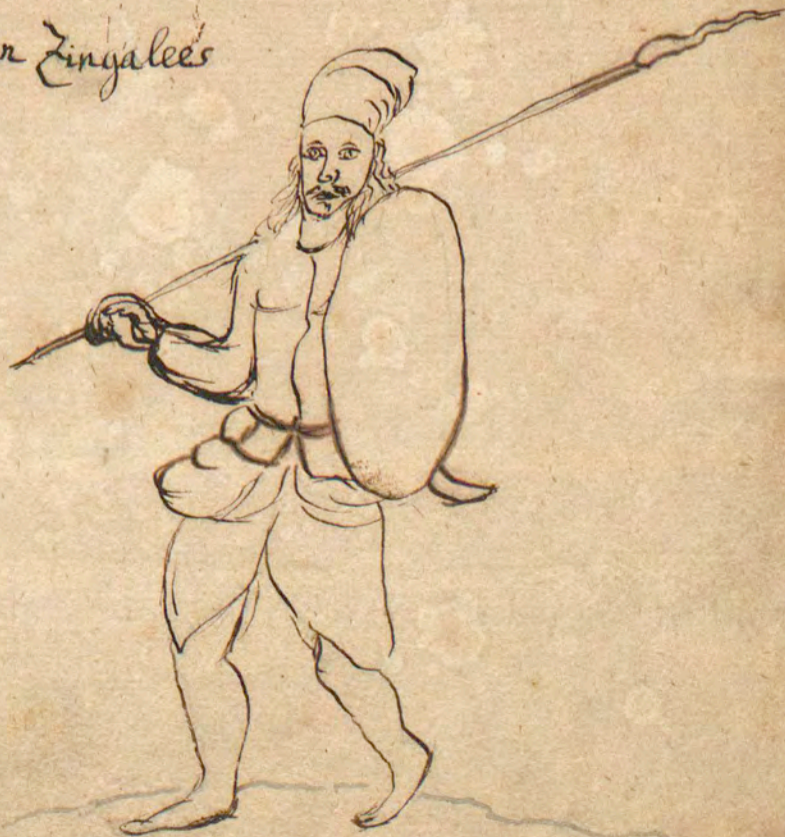 n Zingalees